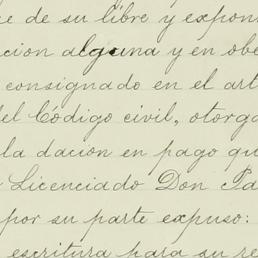 e de su libre y expon
cion alguna y en obe
consignado en el art
del Código civil, otorga
la dacion en pago qu
Licenciado Don Pa
por su parte expuso:
escritura para su re